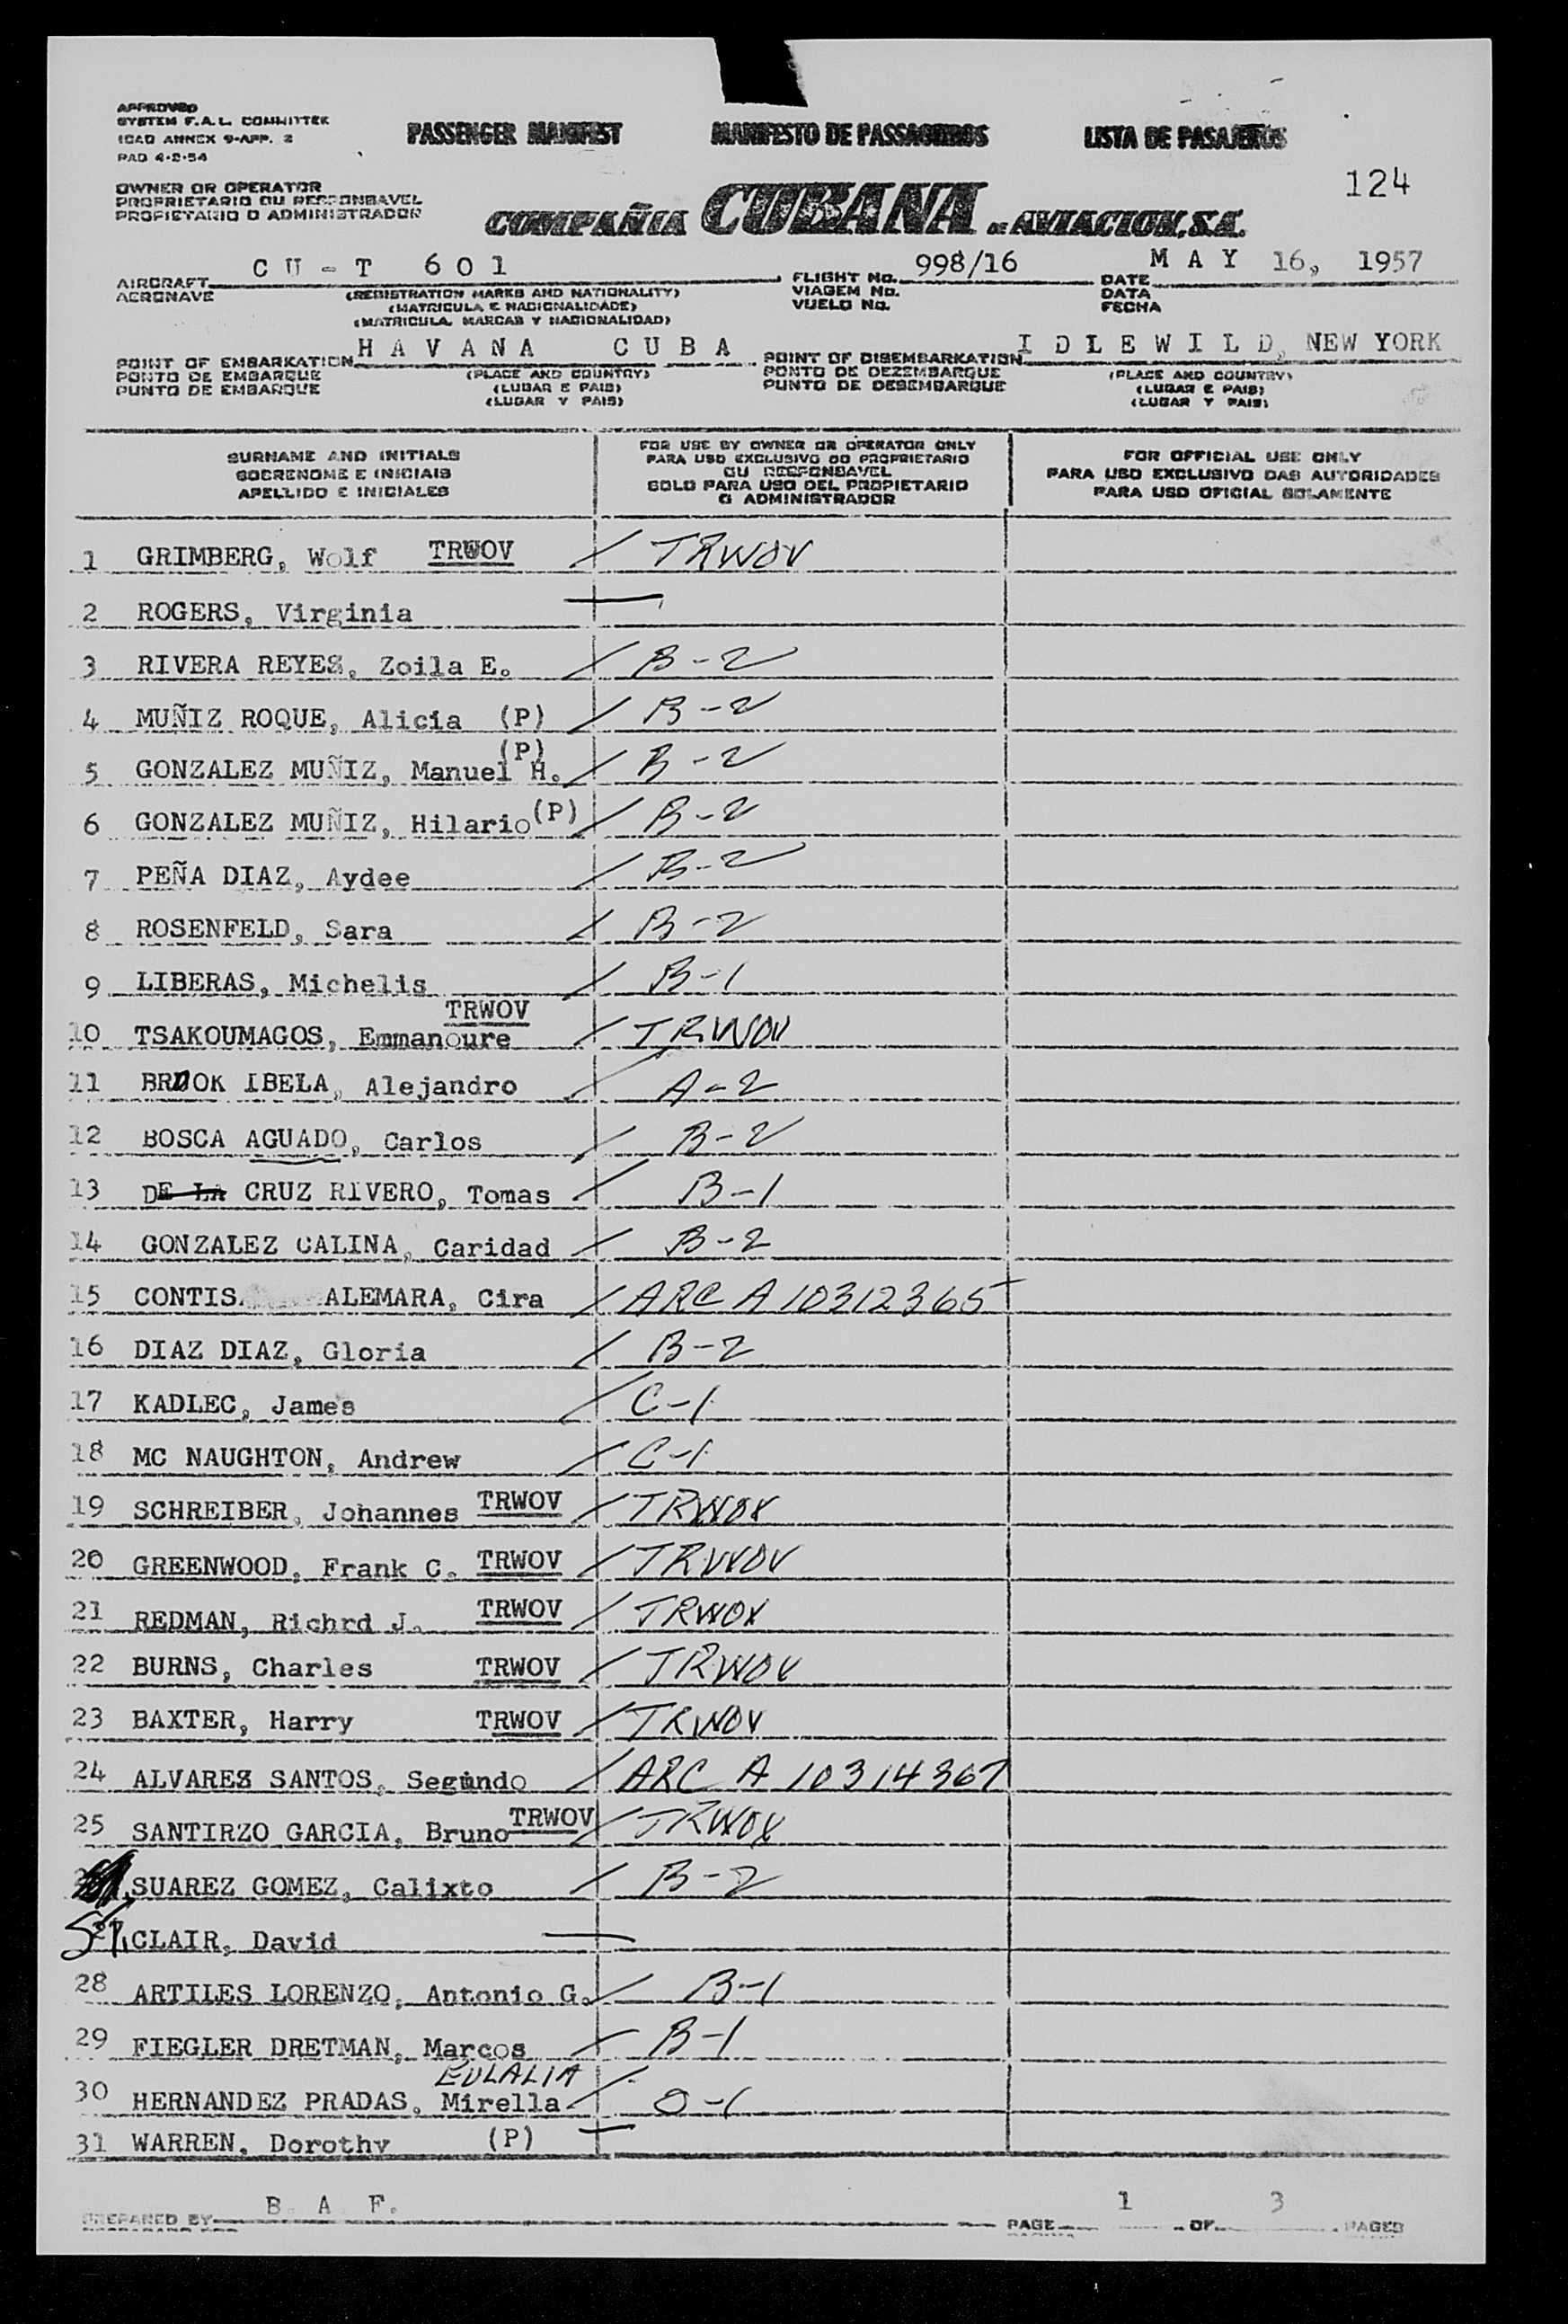 APPROVED
SYSTEM F.A.L. COMMITTEE
ICAO ANNEX 9-APP. 2
PAD 4-2-54
PASSENGER MANIFEST MANIFESTO DE PASSAGEIROS LISTA DE PASAJEROS
124
OWNER OR OPERATOR
PROPRIETARIO OU RESPONSAVEL
PROPIETARIO O ADMINISTRADOR
COMPAÑIA CUBANA DE AVIACION, S.A.
AIRCRAFT CU-T 601 FLIGHT No. 998/16 DATE MAY 16, 1957
AERONAVE (REGISTRATION MARKS AND NATIONALITY) VIAGEM No. DATA
(MATRICULA E NACIONALIDADE) VUELO No. FECHA
(MATRICULA, MARCAS Y NACIONALIDAD)
POINT OF EMBARKATION HAVANA CUBA POINT OF DISEMBARKATION IDLEWILD, NEW YORK
PONTO DE EMBARQUE (PLACE AND COUNTRY) PONTO DE DEZEMBARQUE (PLACE AND COUNTRY)
PUNTO DE EMBARQUE (LUGAR E PAIS) PUNTO DE DESEMBARQUE (LUGAR E PAIS)
(LUGAR Y PAIS) (LUGAR Y PAIS)
SURNAME AND INITIALS
SOBRENOME E INICIAIS
APELLIDO E INICIALES
FOR USE BY OWNER OR OPERATOR ONLY
PARA USO EXCLUSIVO DO PROPRIETARIO
OU RESPONSAVEL
SOLO PARA USO DEL PROPIETARIO
O ADMINISTRADOR
FOR OFFICIAL USE ONLY
PARA USO EXCLUSIVO DAS AUTORIDADES
PARA USO OFICIAL SOLAMENTE
1 GRIMBERG, Wolf TRWOV / TRWOV
2 ROGERS, Virginia —
3 RIVERA REYES, Zoila E. / B-2
4 MUÑIZ ROQUE, Alicia (P) / B-2
5 GONZALEZ MUÑIZ, Manuel H. (P) / B-2
6 GONZALEZ MUÑIZ, Hilario (P) / B-2
7 PEÑA DIAZ, Aydee / B-2
8 ROSENFELD, Sara / B-2
9 LIBERAS, Michelis / B-1
10 TSAKOUMAGOS, Emmanoure TRWOV / TRWOV
11 BROOK IBELA, Alejandro / A-2
12 BOSCA AGUADO, Carlos / B-2
13 DE LA CRUZ RIVERO, Tomas / B-1
14 GONZALEZ CALINA, Caridad / B-2
15 CONTIS ALEMARA, Cira / ARC A 10312365
16 DIAZ DIAZ, Gloria / B-2
17 KADLEC, James / C-1
18 MC NAUGHTON, Andrew / C-1
19 SCHREIBER, Johannes TRWOV / TRWOV
20 GREENWOOD, Frank C. TRWOV / TRWOV
21 REDMAN, Richrd J. TRWOV / TRWOV
22 BURNS, Charles TRWOV / TRWOV
23 BAXTER, Harry TRWOV / TRWOV
24 ALVAREZ SANTOS, Segundo / ARC A 10314367
25 SANTIRZO GARCIA, Bruno TRWOV / TRWOV
SUAREZ GOMEZ, Calixto / B-2
CLAIR, David —
28 ARTILES LORENZO, Antonio G. / B-1
29 FIEGLER DRETMAN, Marcos / B-1
EULALIA
30 HERNANDEZ PRADAS, Mirella / O-1
31 WARREN, Dorothy (P) —
PREPARED BY B. A F. PAGE 1 OF 3 PAGES